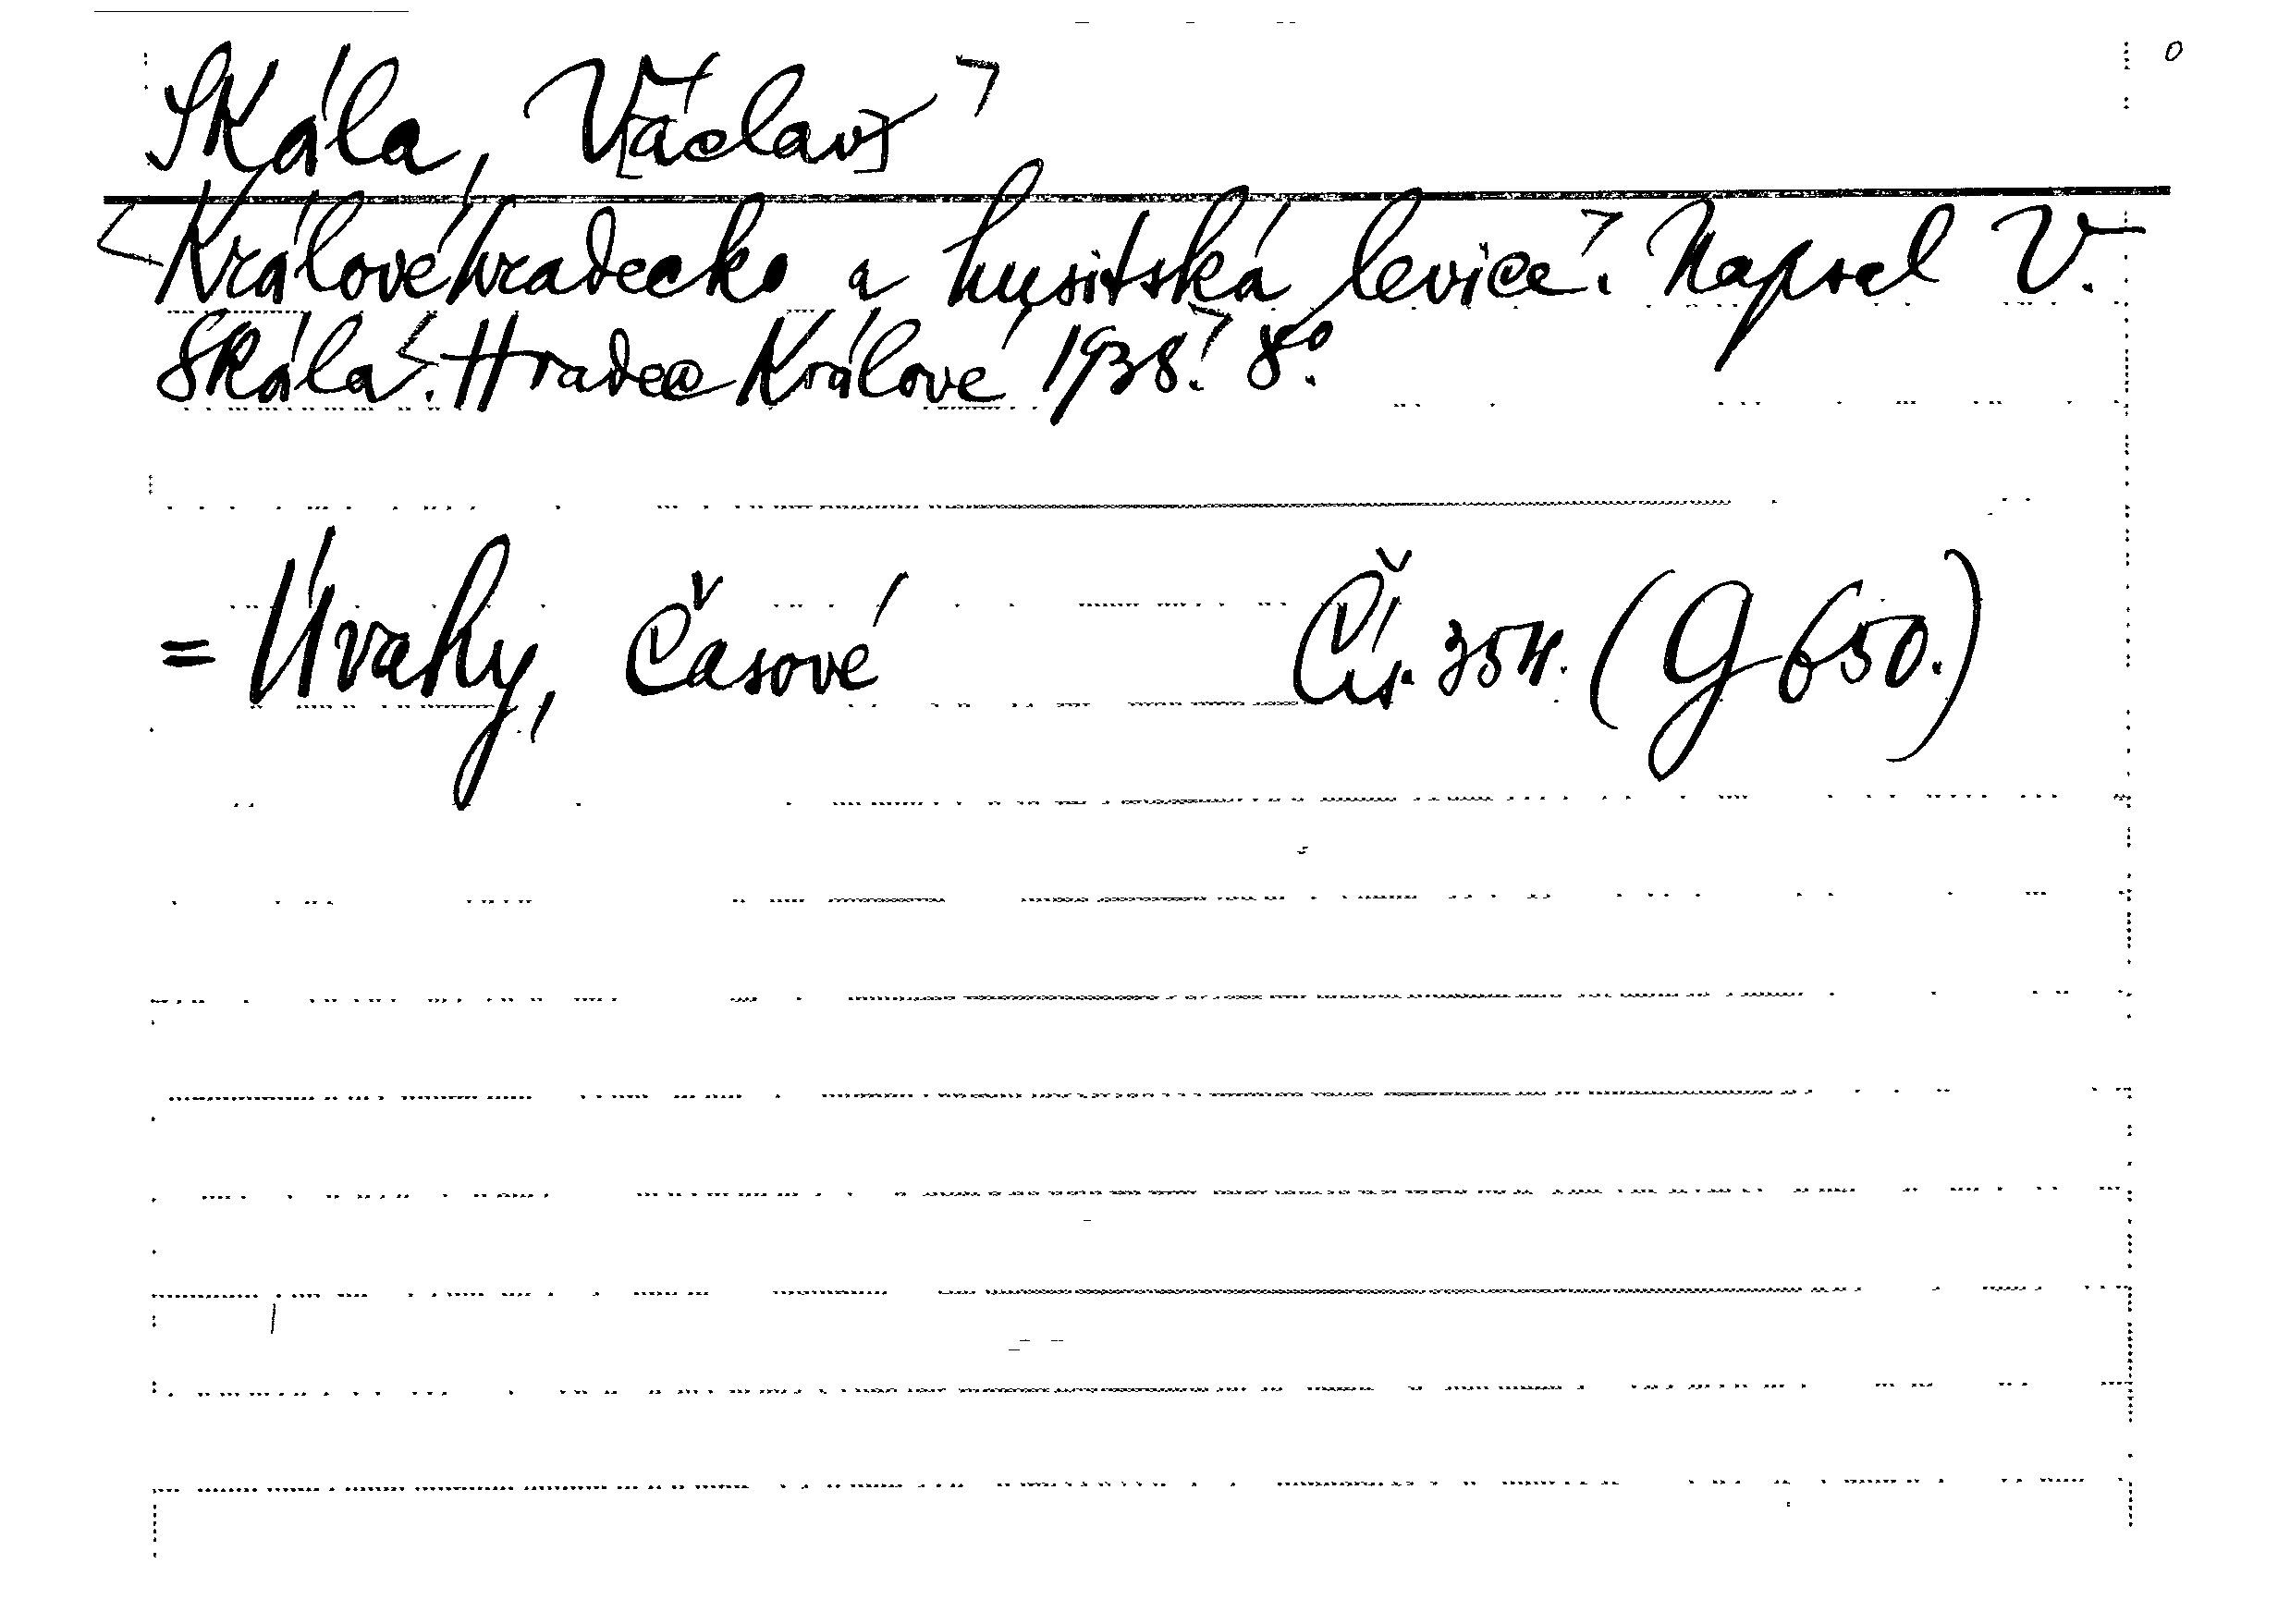 Skála, V[áclav]
Královéhradecko a husitská levice. Napsal V.
Skála. Hradec Králové 1938. 8°.
= Úvahy, Časové Čís. 354. (G 650.)